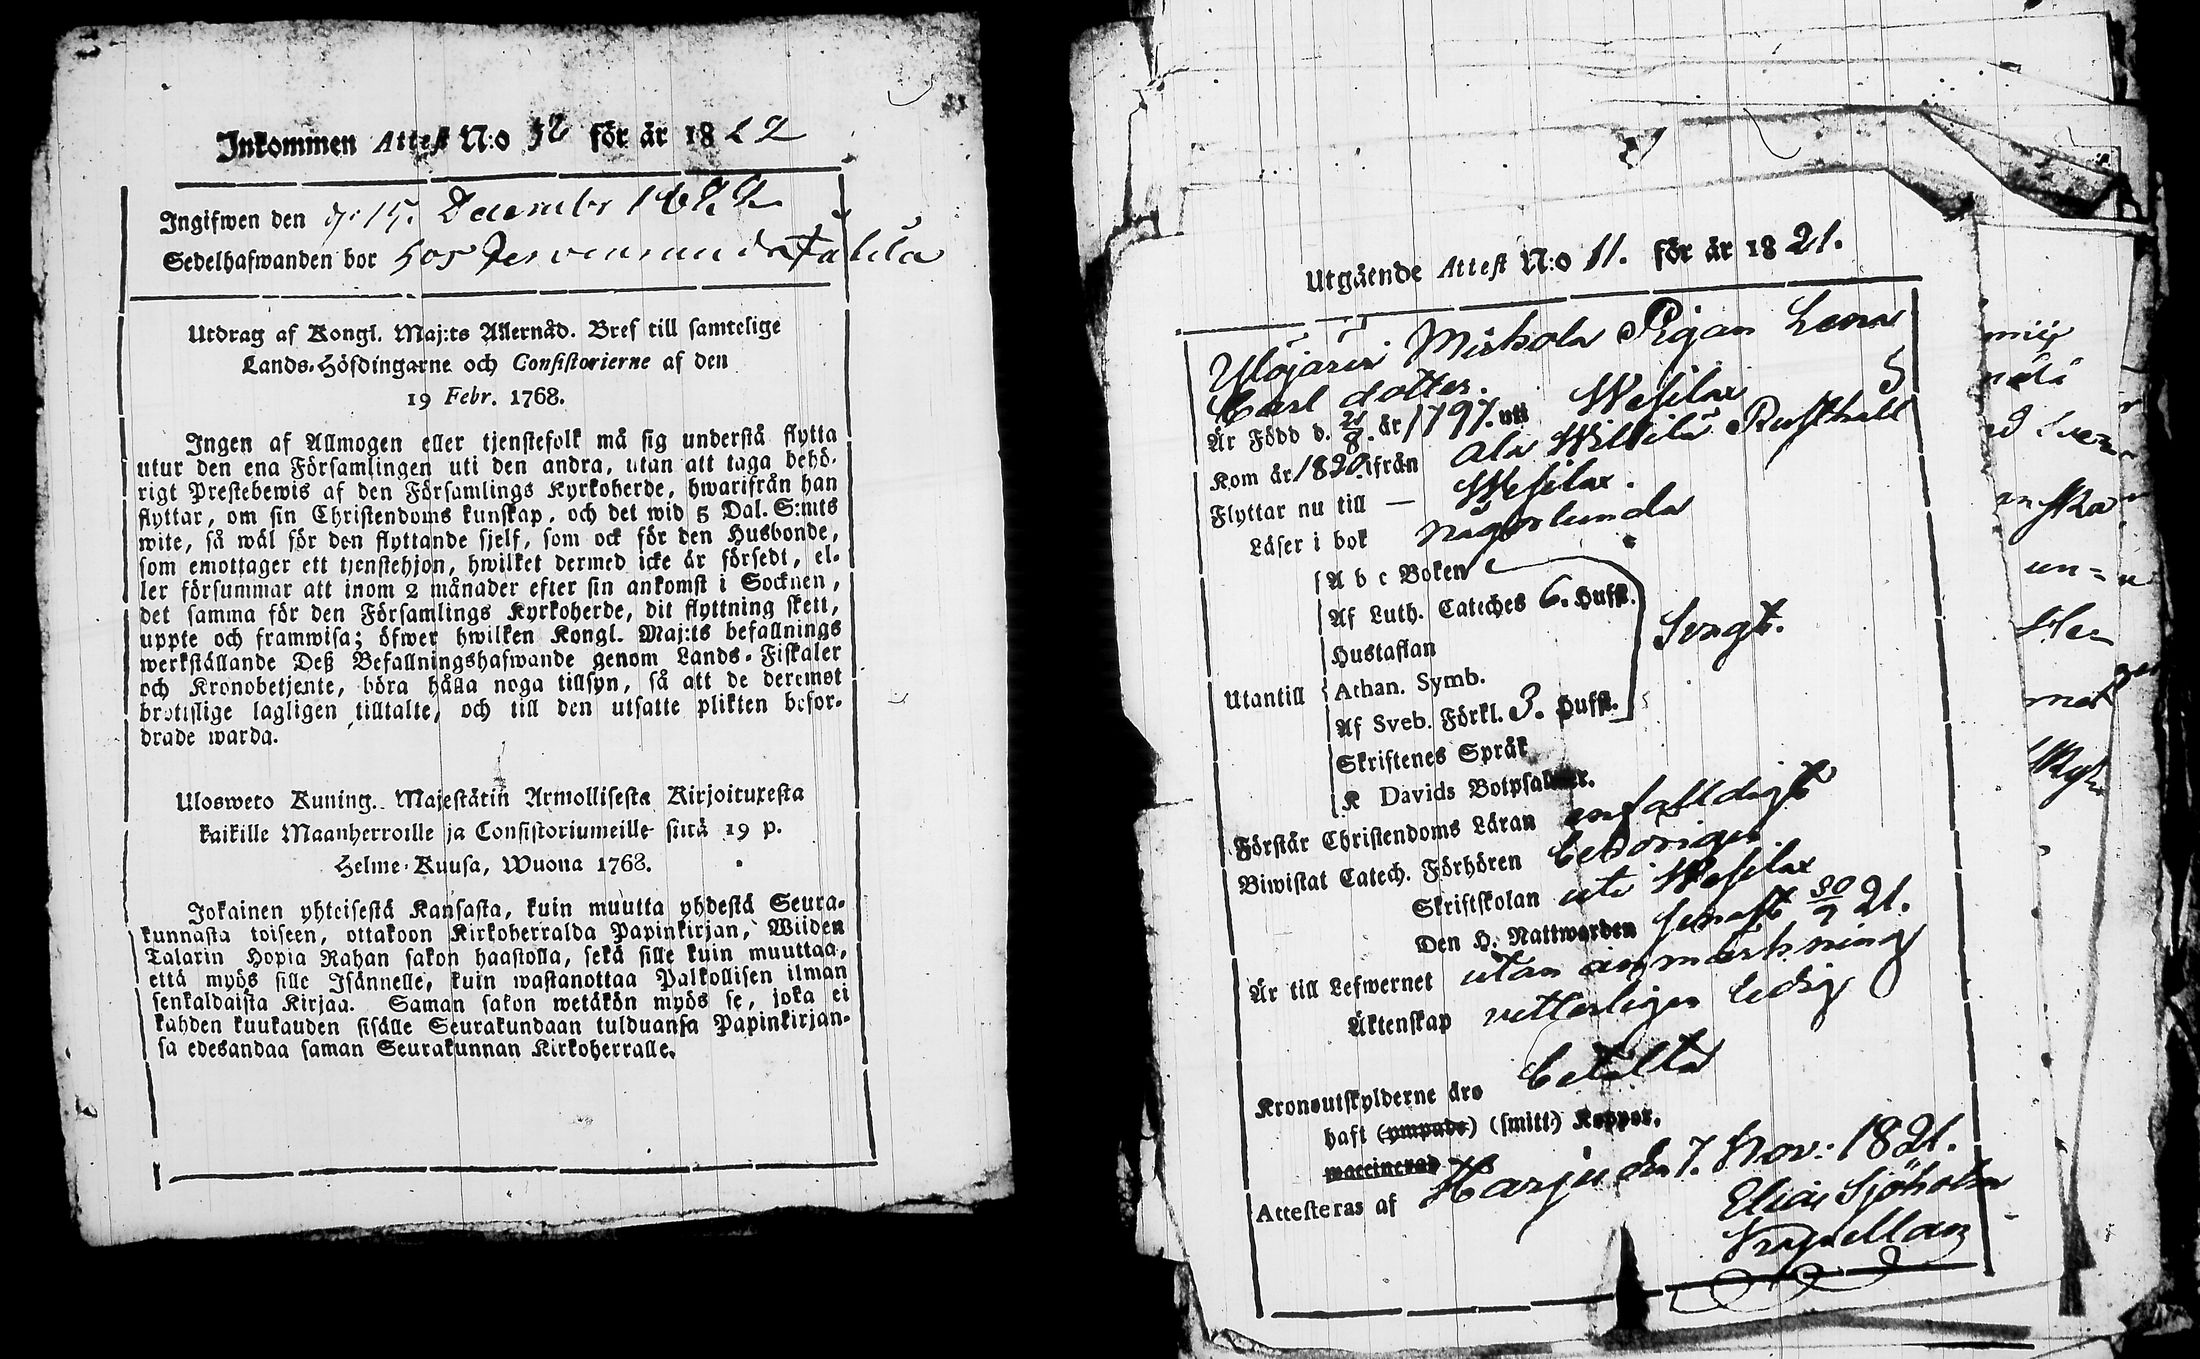 Inkommen Attest N:o 52 för år 1822
Ingifwen den 15. December 1822
Sedelhafwanden bor hos
Utdrag af Kongl. Maj:ts Allernåd. Bref till samtelige
Lands-Höfdingarne och Consistorierne af den
19 Febr. 1768.
Ingen af Allmogen eller tjenstefolk må sig understå flytta
utur den ena Församlingen uti den andra, utan att taga behö-
rigt Prestebewis af den Församlings Kyrkoherde, hwarifrån han
flyttar, om sin Christendoms kunskap, och det wid 5 Dal. S:mts
wite, så wäl för den flyttande sjelf, som ock för den Husbonde,
som emottager ett tjenstehjon, hwilket dermed icke är försedt, el-
ler försummar att inom 2 månader efter sin ankomst i Socknen,
det samma för den Församlings Kyrkoherde, dit flyttning skett,
uppte och framwisa; öfwer hwilken Kongl. Maj:ts befallnings
werkställande Deß Befallningshafwande genom Lands-Fiskaler
och Kronobetjente, böra hålla noga tillsyn, så att de deremot
brottslige lagligen tilltalte, och till den utsatte plikten befor-
drade warda.
Ulosweto Kuning. Majestätin Armollisesta Kirjoituxesta
kaikille Maanherroille ja Consistoriumeille siitä 19 p.
Helme-Kuusa, Wuona 1768.
Jokainen yhteisestä Kansasta, kuin muutta yhdestä Seura-
kunnasta toiseen, ottakoon Kirkoherralda Papinkirjan, Wiiden
Talarin Hopia Rahan sakon haastolla, sekä sille kuin muuttaa,
että myös sille Isännelle, kuin wastanottaa Palkollisen ilman
senkaldaista Kirjaa. Saman sakon wetäkön myös se, joka ei
kahden kuukauden sisälle Seurakundaan tulduansa Papinkirjan-
sa edesandaa saman Seurakunnan Kirkoherralle.
Utgående Attest N:o 11. för år 1821.
Ylöjärvi Mickola Pigan Lena
Carl dotter.
Är Född d. 21/8. år 1797. uti Wesilax
Kom år 1820. ifrån Ala Willilä Rusthåll
Flyttar nu till — Wesilax.
Läser i bok någorlunda
A b c Boken
Af Luth. Cateches 6. Hufst.
Hustaflan
Utantill Athan. Symb.
Af Sveb. Förkl. 3. Hufst.
Svagt.
Skriftenes Språk
K Davids Botpsalmer.
Förstår Christendoms Läran enfaldigt
Biwistat Catech. Förhören behörigen
Skriftskolan uti Wesilax
Den H. Nattwarden senast 30/9 21.
Är till Lefwernet utan anmärkning
Äktenskap vitterligen ledig
Kronoutskylderne äro betalta
haft (ympade) (smitt) Koppor.
waccinerad
Attesteras af Harju den 7. Nov: 1821.
Elias Sjöholm
Kapellan